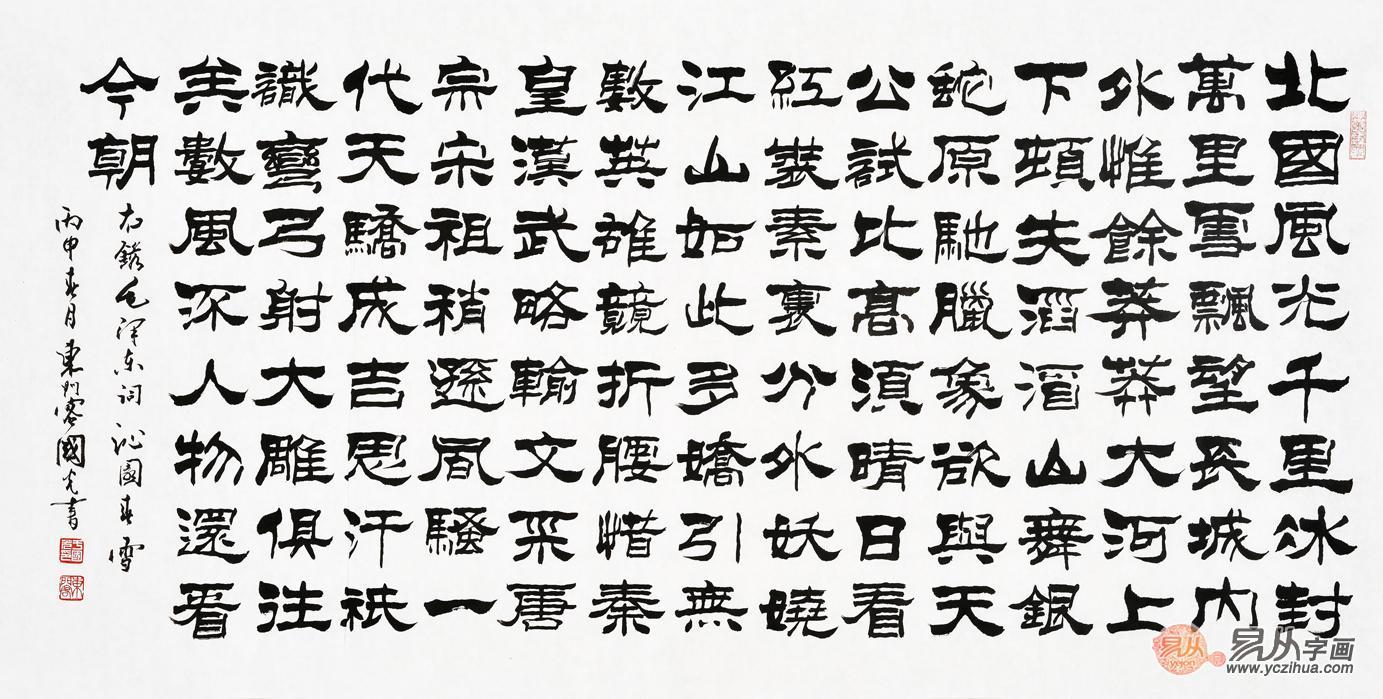 北國風光千里冰封
萬里雪飄望長城內
外惟餘莽莽大河上
下頓失滔滔山舞銀
蛇原馳臘象欲與天
公試比高須晴日看
紅裝素裹分外妖嬈
江山如此多嬌引無
數英雄競折腰惜秦
皇漢武略輸文采唐
宗宋祖稍遜風騷一
代天驕成吉思汗祇
識彎弓射大雕俱往
矣數風流人物還看
今朝
右錄毛澤东詞沁園春雪
丙申春月東門客國光書
易从字画
www.yczihua.com